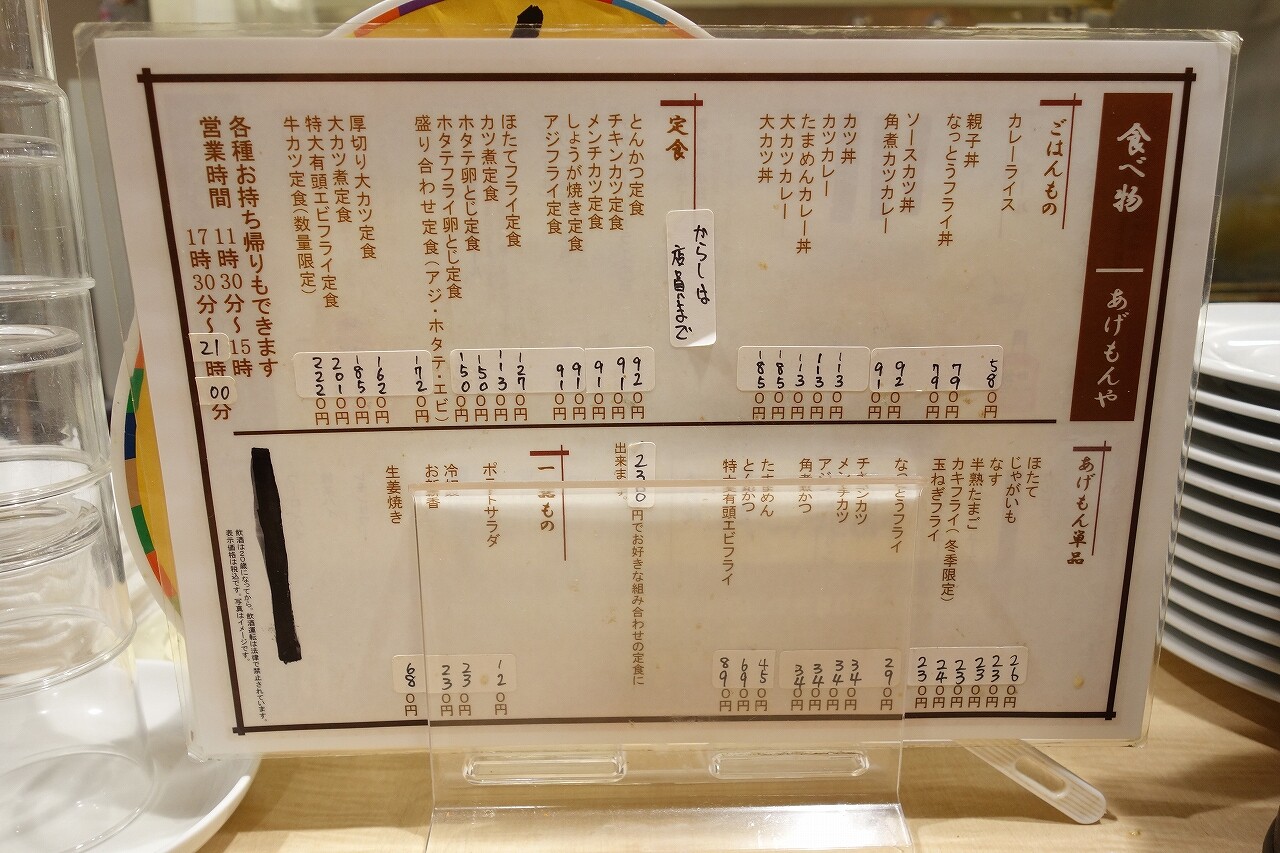 食べ物 ― あげもんや
ごはんもの
カレーライス 580円
親子丼 790円
なっとうフライ丼 790円
ソースカツ丼 920円
角煮カツカレー 910円
カツ丼 1130円
カツカレー 1130円
たまめんカレー丼 1130円
大カツカレー 1850円
大カツ丼 1850円
定食
からしは
店員まで
とんかつ定食 920円
チキンカツ定食 910円
メンチカツ定食 910円
しょうが焼き定食 910円
アジフライ定食 910円
ほたてフライ定食 1270円
カツ煮定食 1130円
ホタテ卵とじ定食 1500円
ホタテフライ卵とじ定食 1500円
盛り合わせ定食(アジ・ホタテ・エビ) 1720円
厚切り大カツ定食 1620円
大カツ煮定食 1850円
特大有頭エビフライ定食 2010円
牛カツ定食(数量限定) 2220円
各種お持ち帰りもできます
営業時間 11時30分〜15時
17時30分〜21時00分
あげもん単品
ほたて 260円
じゃがいも 230円
なす 230円
半熟たまご 230円
カキフライ(冬季限定) 240円
玉ねぎフライ 230円
なっとうフライ 290円
チキンカツ 340円
メンチカツ 340円
アジ 340円
角煮かつ 340円
たまめん 450円
とんかつ 690円
特大有頭エビフライ 890円
230円でお好きな組み合わせの定食に
出来ます
一品もの
ポテトサラダ 120円
冷奴 230円
お新香 230円
生姜焼き 680円
飲酒は20歳になってから。飲酒運転は法律で禁止されています。
表示価格は税込です。写真はイメージです。